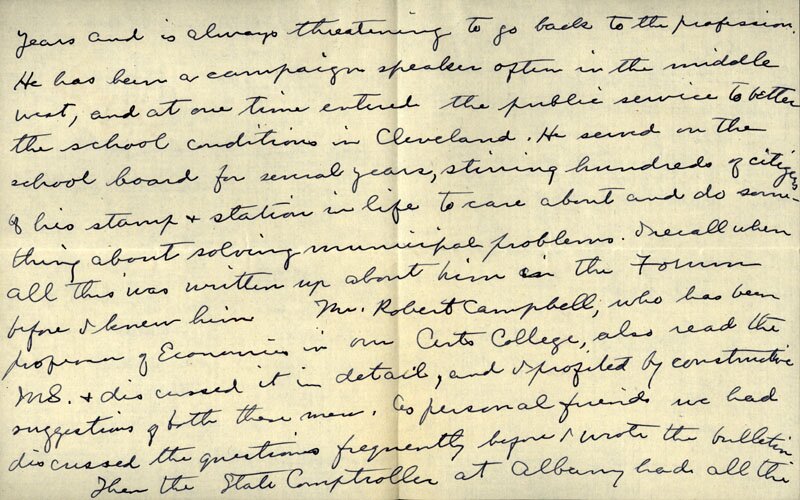 years and is always threatening to go back to the profession.
He has been a campaign speaker often in the middle
west, and at one time entered the public service to better
the school conditions in Cleveland. He served on the
school board for several years, stirring hundreds of citizens
of his stamp & station in life to care about and do some-
thing about solving municipal problems. I recall when
all this was written up about him in the Forum
before I knew him Mr. Robert Campbell, who has been
professor of Economics in our Arts College, also read the
MS. & discussed it in detail, and I profited by constructive
suggestions of both these men. As personal friends we had
discussed the questions frequently before I wrote the bulletin
Then the State Comptroller at Albany had all the